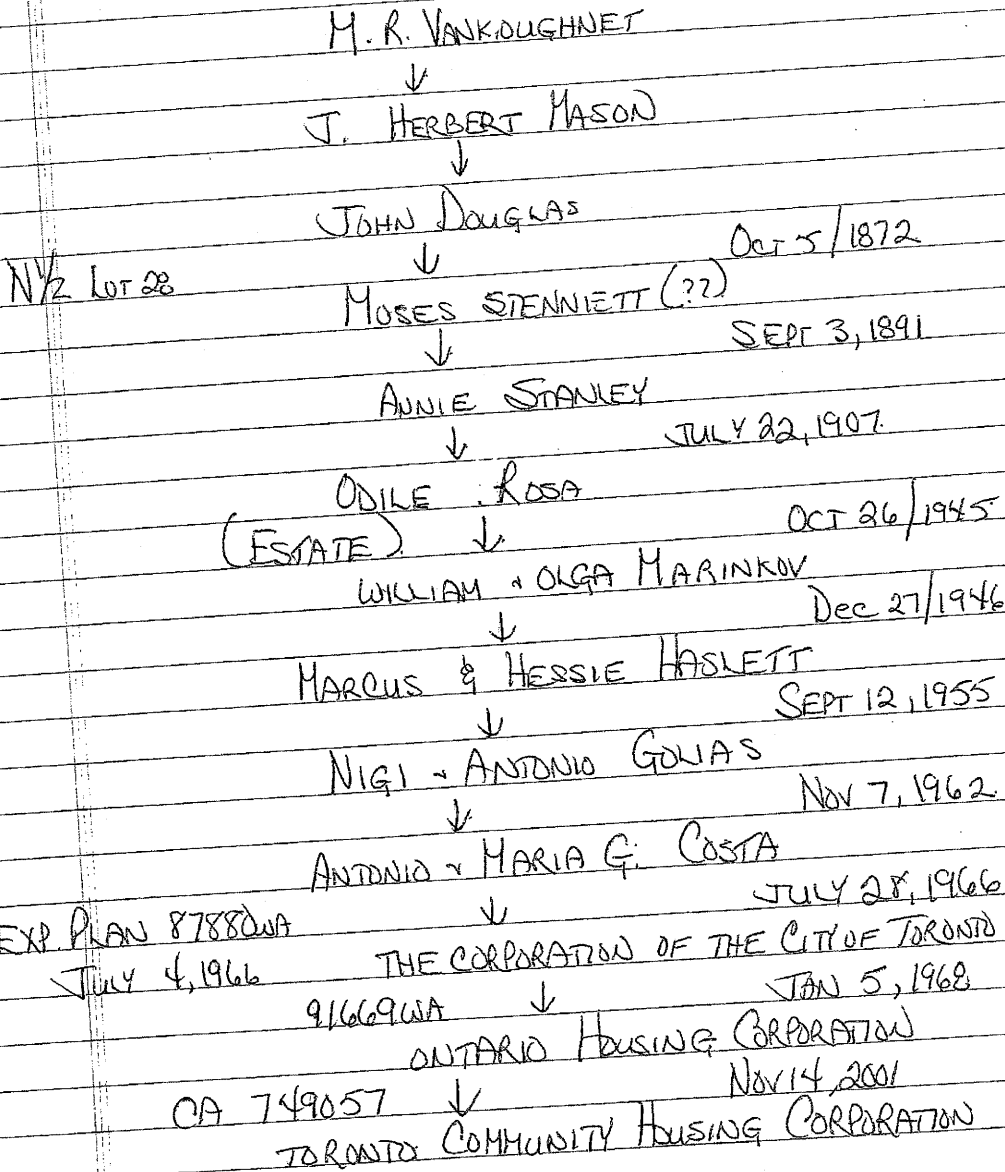 M. R. VANKOUGHNET
↓
J. HERBERT MASON
↓
JOHN DOUGLAS
↓ OCT 5/1872
N½ LOT 28
MOSES STENNIETT (??)
↓ SEPT 3, 1891
ANNIE STANLEY
↓ JULY 22, 1907.
ODILE ROSA
(ESTATE) ↓ OCT 26/1945
WILLIAM & OLGA MARINKOV
↓ Dec 27/1946
MARCUS & HESSIE HASLETT
↓ SEPT 12, 1955
NIGI & ANTONIO GOLIAS
↓ NOV 7, 1962
ANTONIO & MARIA G. COSTA
↓ JULY 28, 1966
EXP. PLAN 87880WA
JULY 4, 1966 THE CORPORATION OF THE CITY OF TORONTO
91669WA ↓ JAN 5, 1968
ONTARIO HOUSING CORPORATION
CA 749057 ↓ NOV 14, 2001
TORONTO COMMUNITY HOUSING CORPORATION